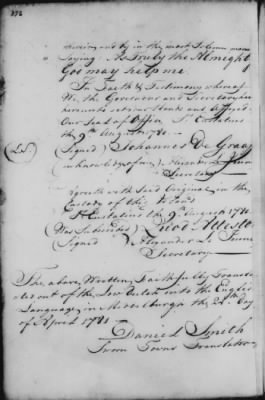 398
therein, and by in the most Solemn manner
Saying, As Truly the Almighty
God may help me.
In Faith & Testimony whereof
We, the Governor and Secretary have
hereunto set our Hands and Affixed
Our Seal of Office St Eustatius
the 9th August 1780.
(LS) Signed) Johannes De Graaf
Alexander
Secretary
agreeth with said Original in the
Custody of this Island
St Eustatius the 9th August 1780
(Was Subscribed) Quod Attestor
Signed Alexander
Secretary
The above Written, Faithfully Transl
ated out of the Low Dutch into the English
Language, in Middelburgh the 25th Day
of April 1781
Daniel Smith
Sworn Translator